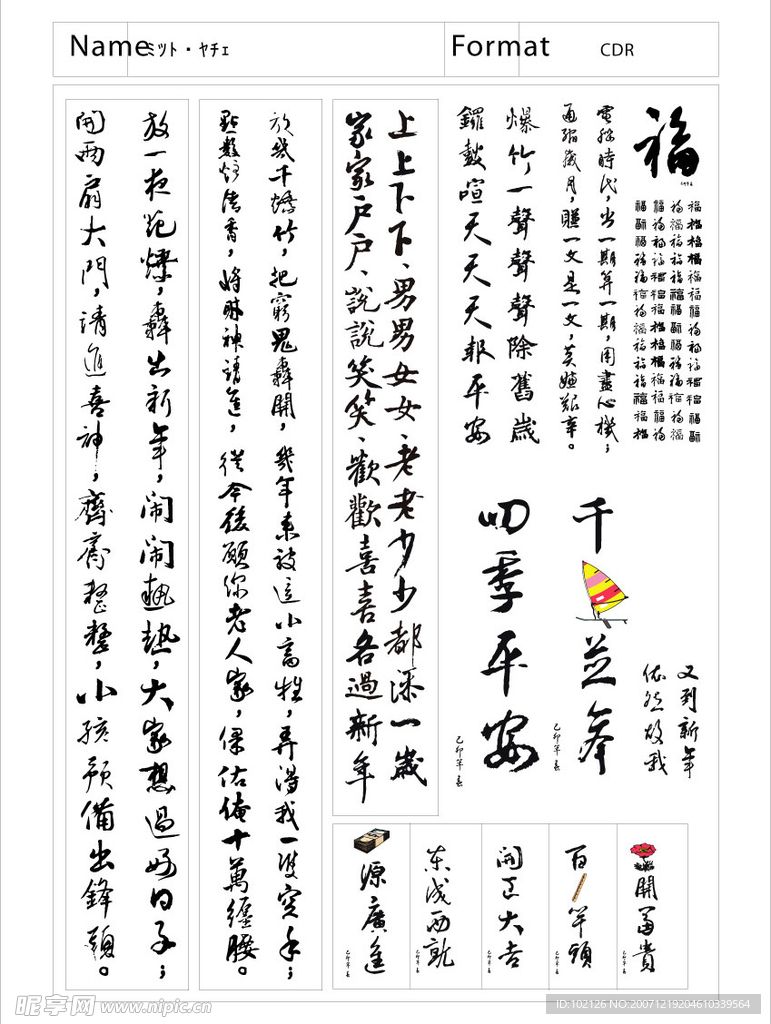 Name ﾐﾂﾄ・ﾔﾁｪ
Format CDR
放一夜炮燎，轟出新年，闹闹熱熱，大家想過好日子；
開两扇大門，請進喜神，齊齊整整，小孩預備出鋒頭。
放幾千爆竹，把窮鬼轟開，幾年來被這小畜牲，弄得我一雙空手；
點數炉清香，將財神請進，從今後願你老人家，保佑俺十萬纏腰。
上上下下、男男女女、老老少少都添一歲
家家户户、說說笑笑、歡歡喜喜各過新年
爆竹一聲聲聲除舊歲
鑼鼓喧天天天報平安
電腦時代，出一期算一期，用盡心機；
通縮歲月，賺一文是一文，莫嫌艱辛。
福
千
並舉
四季平安
己卯年
己卯年
又到新年
依然故我
開富貴
百
竿頭
開工大吉
東成西就
源廣進
昵享网 www.nipic.cn
ID:102126 NO:20071219204610339564